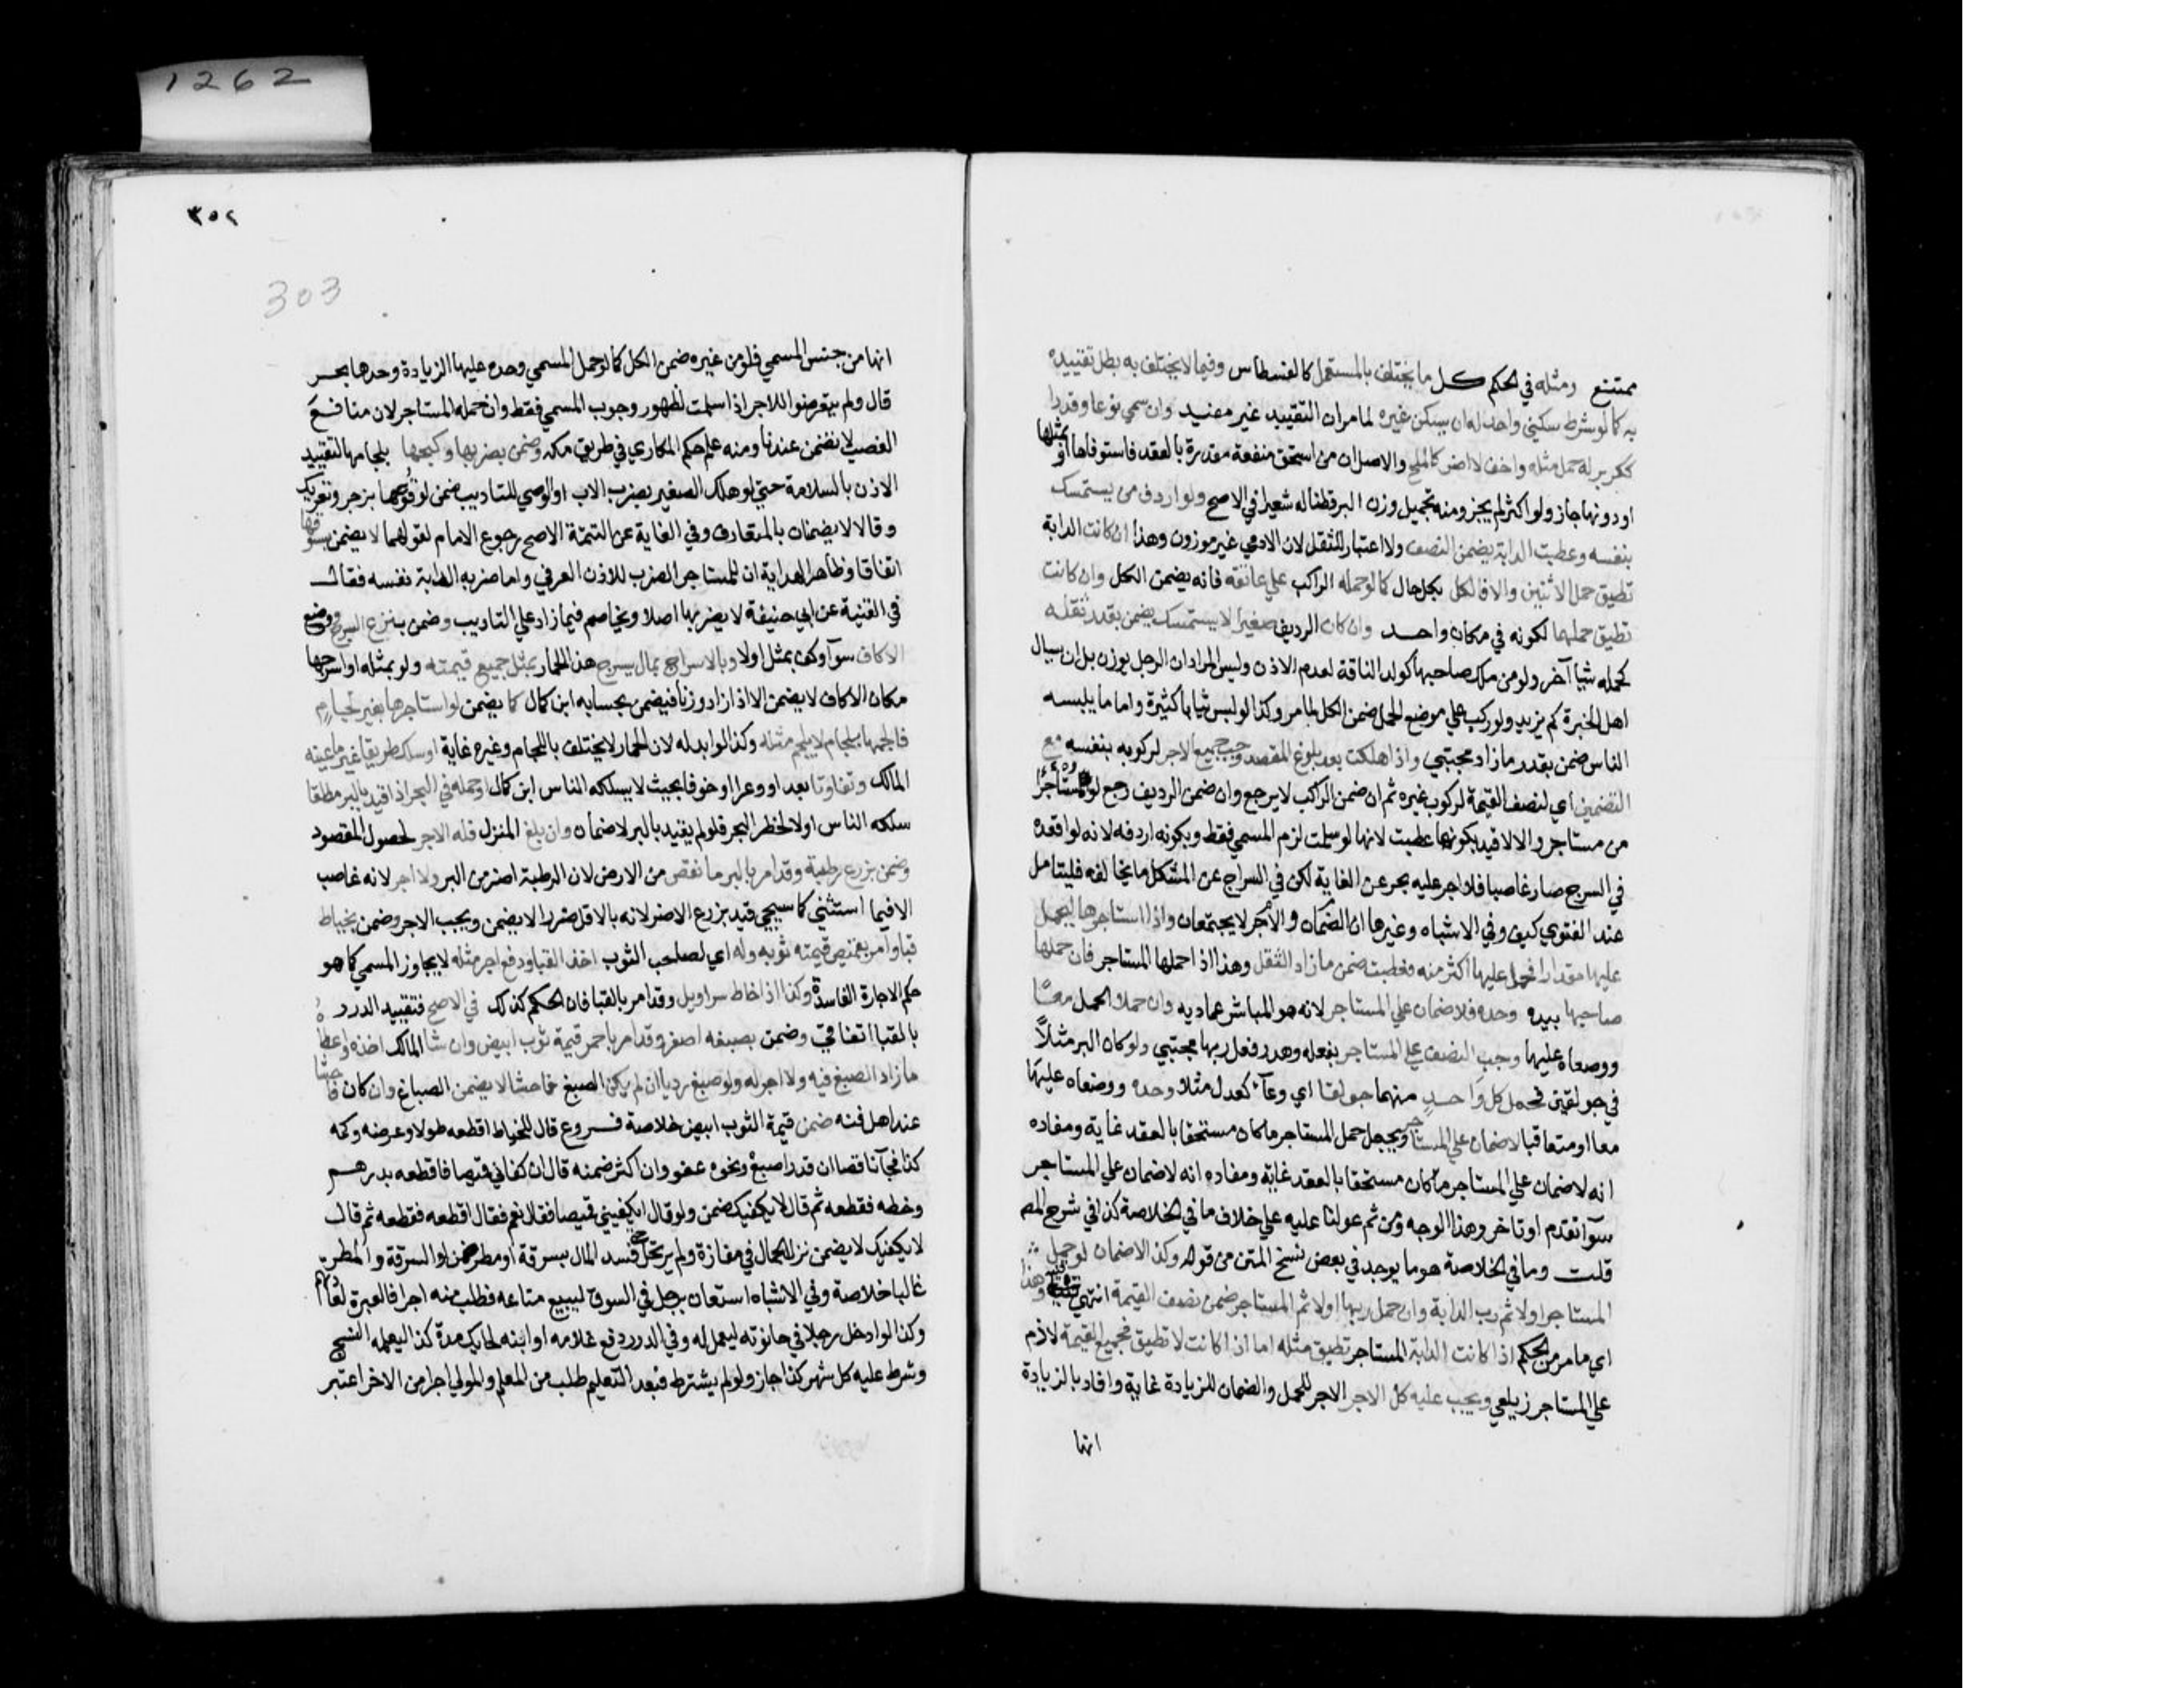 ممتنع ومثله في الحكم كل ما يختلف بالمستعمل كالفسطاس وفيما لا يختلف به بطل تقييده
به كما لو شرط سكني واحد له ان يسكن غيره لمامر ان التقييد غير مفيد وان سمي نوعا وقدرا
ككر بر له حمل مثله واخف لا اضر كالملح والاصل ان من استحق منفعة مقدرة بالعقد فاستوفاها او بمثلها
او دونها جاز ولو اكثر لم يجز ومنه تحميل وزن البر قطنا له شعيرا في الاصح ولو اردف من يستمسك
بنفسه وعطبت الدابة يضمن النصف ولا اعتبار للثقل لان الادمي غير موزون وهذا ان كانت الدابة
تطيق حمل الاثنين والا فالكل بكل حال كما لو حمله الراكب علي عاتقه فانه يضمن الكل وان كانت
تطيق حملهما لكونه في مكان واحد وان كان الرديف صغيرا لا يستمسك يضمن بقدر ثقله
كحمله شيا آخر ولو من ملك صاحبها كولد الناقة لعدم الاذن وليس المراد ان الرجل يوزن بل ان يسال
اهل الخبرة كم يزيد ولو ركب علي موضع الحمل ضمن الكل لمامر وكذا لو لبس ثيابا كثيرة واما ما يلبسه
الناس ضمن بقدر ما زاد مجتبي واذا هلكت بعد بلوغ المقصد وجب جميع الاجر لركوبه بنفسه مع
التضمين اي لنصف القيمة لركوب غيره ثم ان ضمن الراكب لا يرجع وان ضمن الرديف رجع لو مستاجرا
من مستاجر والا لا قيد بكونها عطبت لانها لو سلمت لزم المسمي فقط وبكونه اردفه لانه لو اقعده
في السرج صار غاصبا فلا اجر عليه بحر عن الغاية لكن في السراج عن المشكل ما يخالفه فليتامل
عند الفتوي كيف وفي الاشباه وغيرها ان الضمان والاجر لا يجتمعان واذا استاجرها ليحمل
عليها مقدارا فحمل عليها اكثر منه فعطبت ضمن ما زاد الثقل وهذا اذا حملها المستاجر فان حملها
صاحبها بيده وحده فلا ضمان علي المستاجر لانه هو المباشر عماديه وان حملا الحمل معا
ووضعاه عليها وجب النصف علي المستاجر بفعله وهدر فعل ربها مجتبي ولو كان البر مثلا
في جولقين فحمل كل واحد منهما جولقا اي وعآء كعدل مثلا وحده ووضعاه عليها
معا او متعاقبا لا ضمان علي المستاجر ويجعل حمل المستاجر ما كان مستحقا بالعقد غاية ومفاده
انه لا ضمان علي المستاجر ما كان مستحقا بالعقد غاية ومفاده انه لا ضمان علي المستاجر
سوآ تقدم او تاخر وهذا الوجه ومن ثم عولنا عليه علي خلاف ما في الخلاصة كذا في شرح المص
قلت وما في الخلاصة هو ما يوجد في بعض نسخ المتن من قوله وكذا لا ضمان لو حمل
المستاجر اولا ثم رب الدابة وان حمل ربها اولا ثم المستاجر ضمن نصف القيمة انتهي وهذا
اي ما مر من الحكم اذا كانت الدابة المستاجر تطيق مثله اما اذا كانت لا تطيق فجميع القيمة لازم
علي المستاجر زيلعي ويجب عليه كل الاجر الاجر للحمل والضمان للزيادة غاية وافاد بالزيادة
انها
٣٥٢
303
1262
انها من جنس المسمي فلو من غيره ضمن الكل كما لو حمل المسمي وحده عليها الزيادة وحدها بحر
قال ولم يتعرضوا للاجر اذا سلمت لظهور وجوب المسمي فقط وان حمله المستاجر لان منافع
الغصب لا تضمن عندنا ومنه علم حكم المكاري في طريق مكه وضمن بضربها وكبحها بلجامها لتقييد
الاذن بالسلامة حتي لو هلك الصغير بضرب الاب او الوصي للتاديب ضمن لوقوعهما بزجر وتعريك
وقالا لا يضمنان بالمتعارف وفي الغاية عن التتمة الاصح رجوع الامام لقولهما لا يضمن بسوقها
اتفاقا وظاهر الهداية ان للمستاجر الضرب للاذن العرفي واما ضربه الدابة نفسه فقال
في القنية عن ابي حنيفة لا يضربها اصلا ويخاصم فيما زاد علي التاديب وضمن بنزع السرج ووضع
الاكاف سوآ وكف بمثل او لا وبالاسراج بمال يسرج هذا الحمار بمثل جميع قيمته ولو بمثله او اسرجها
مكان الاكاف لا يضمن الا اذا زاد وزنا فيضمن بحسابه ابن كمال كما يضمن لو استاجرها بغير لجام
فالجمها بلجام لا يلجم مثله وكذا لو ابدله لان الحمار لا يختلف باللجام وغيره غاية او سلك طريقا غير ما عينه
المالك وتفاوتا بعدا او وعرا او خوفا بحيث لا يسلكه الناس ابن كمال او حمله في البحر اذا قيد بالبر مطلقا
سلكه الناس او لا لخطر البحر فلو لم يقيد بالبر لا ضمان وان بلغ المنزل فله الاجر لحصول المقصود
وضمن بزرع رطبة وقد امر بالبر ما نقص من الارض لان الرطبة اضر من البر ولا اجر لانه غاصب
الا فيما استثني كما سيجي قيد بزرع الاضر لانه بالاقل ضررا لا يضمن ويجب الاجر وضمن بخياط
قبا وامر بقميص قيمته ثوبه وله اي لصاحب الثوب اخذ القبا ودفع اجر مثله لا يجاوز المسمي كما هو
حكم الاجارة الفاسدة وكذا اذا خاط سراويل وقد امر بالقبا فان الحكم كذلك في الاصح فتقييد الدرر
بالقبا اتفاقي وضمن بصبغه اصفر وقد امر باحمر قيمة ثوب ابيض وان شا المالك اخذه واعطا
ما زاد الصبغ فيه ولا اجر له ولو صبغ رديا ان لم يكن الصبغ فاحشا لا يضمن الصباغ وان كان فاحشا
عند اهل فنه ضمن قيمة الثوب ابيض خلاصة فروع قال للخياط اقطعه طولا وعرضه وكمه
كذا فجآ ناقصا ان قدر اصبع ونحوه عفو وان اكثر ضمنه قال ان كفاني قميصا فاقطعه بدرهم
وخطه فقطعه ثم قال لا يكفيك ضمن ولو قال ايكفيني قميصا فقال نعم فقال اقطعه فقطعه ثم قال
لا يكفيك لا يضمن نزل الجمال في مفازة ولم يرتحل حتي فسد المال بسرقة او مطر ضمن لو السرقة والمطر
غالبا خلاصة وفي الاشباه استعان برجل في السوق ليبيع متاعه فطلب منه اجرا فالعبرة لعادتهم
وكذا لو ادخل رجلا في حانوته ليعمل له وفي الدرر دفع غلامه او ابنه لحايك مدة كذا ليعلمه النسج
وشرط عليه كل شهر كذا جاز ولو لم يشترط فبعد التعليم طلب من المعلم والمولي اجرا من الاخر اعتبر